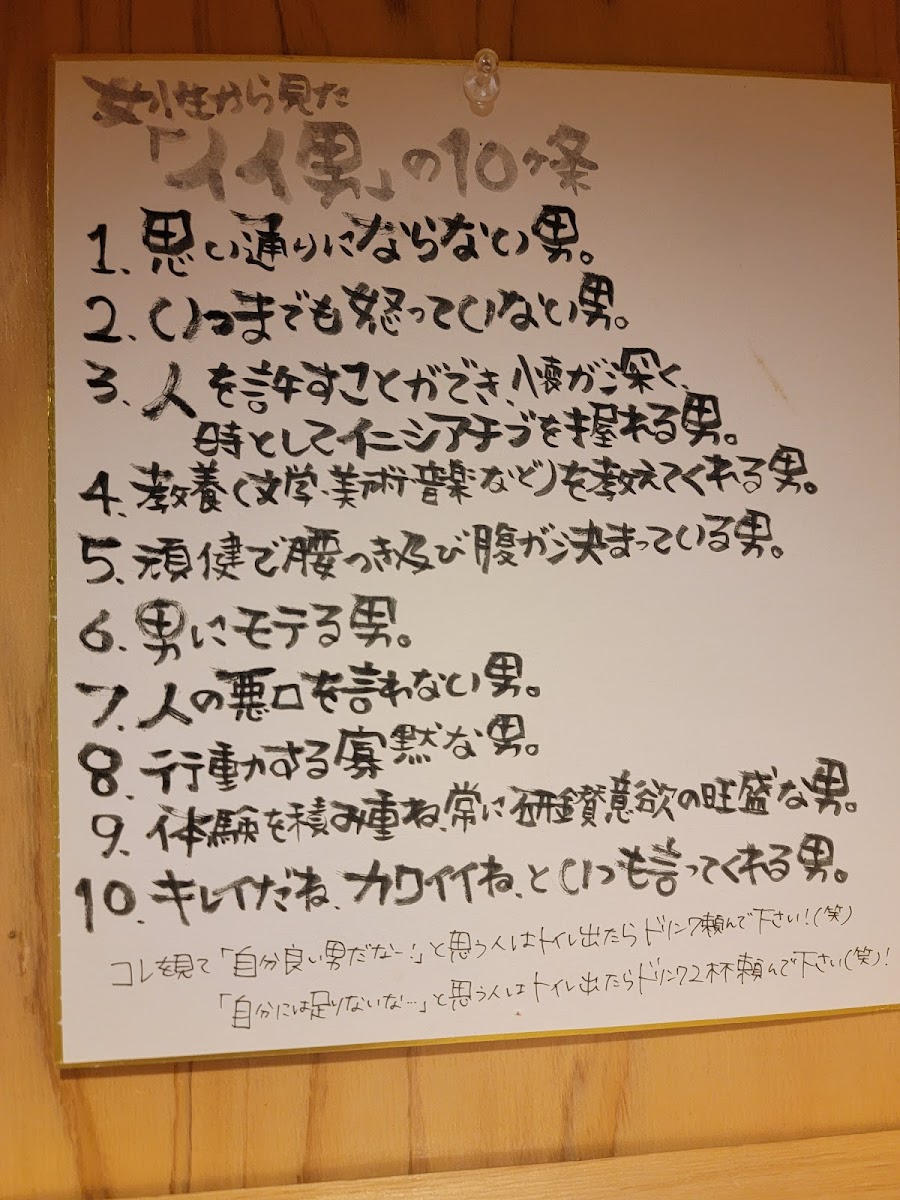 女性から見た
「イイ男」の10ヶ条
1. 思い通りにならない男。
2. いつまでも怒っていない男。
3. 人を許すことができ、懐が深く、
時としてイニシアチブを握れる男。
4. 教養(文学・美術・音楽など)を教えてくれる男。
5. 頑健で腰つき及び腹が決まっている男。
6. 男にモテる男。
7. 人の悪口を言わない男。
8. 行動する寡黙な男。
9. 体験を積み重ね、常に研鑚意欲の旺盛な男。
10. キレイだね、カワイイね、といつも言ってくれる男。
コレを見て「自分良い男だなー!」と思う人はトイレ出たらドリンク頼んで下さい!(笑)
「自分には足りないな…」と思う人はトイレ出たらドリンク2杯頼んで下さい(笑)!